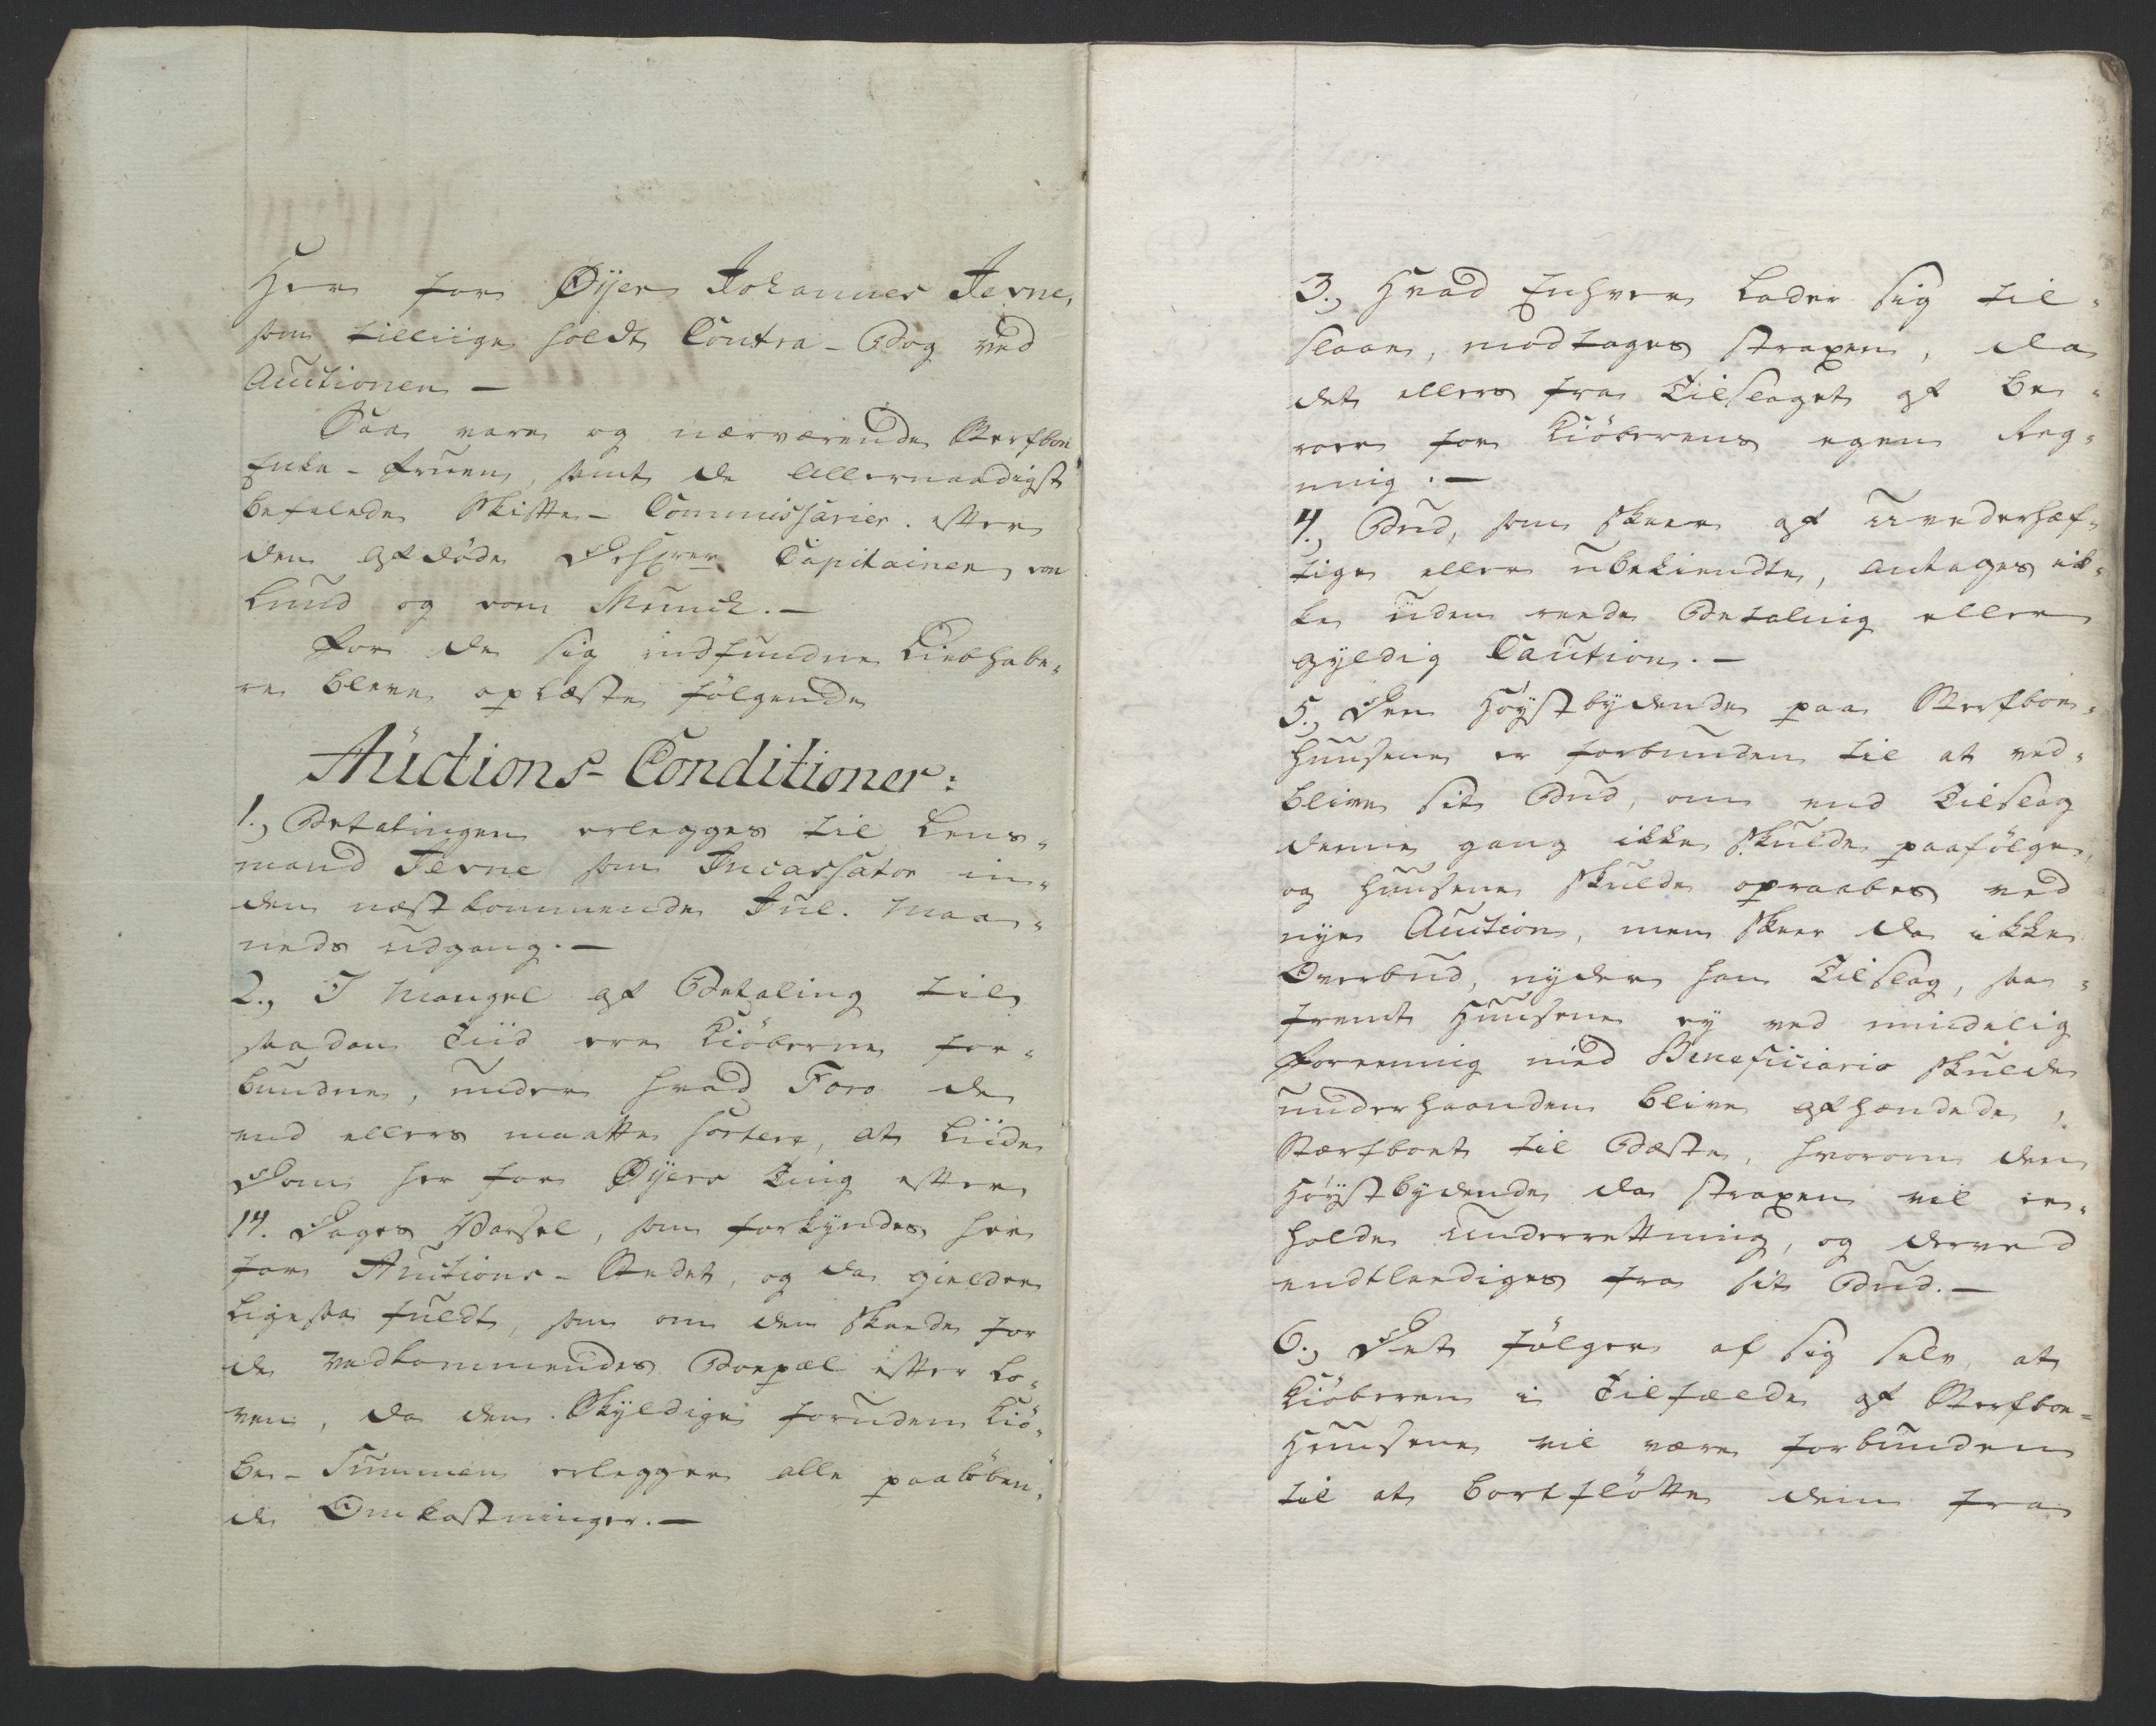 Her for Øÿer Johannes Jevne,
som tilliige holdt Contra-Bog ved
Auctionen —
Saa vare og nærværende Sterfboe
Enke-Fruen, samt de Allernaadigst
befalede Skifte-Commissarier efter
den afdöde Capitainen von
Lund og von Munck. —
For de sig indfundne Liebhabe-
re bleve oplæste fölgende
Auctions-Conditioner:
1., Betalingen erlegges til Lens-
mand Jevne som Incassator in-
den næstkommende Jul. Maa-
neds udgang. —
2., I Mangel af Betaling til
saadan Tiid ere Kiöberne for-
bundne, under hvad Foro de
end ellers maatte sortere, at liide
Dom her for Øÿers Ting efter
14. Dages Varsel, som forkyndes her
for Auctions-Stedet, og da gielder
ligesaa fuldt, som om den skeede for
de Vedkommendes Boepæl efter Lo-
ven, da den Skyldige foruden Kiö-
be-Summen erlegger alle paalöben-
de Omkostninger. —
3., Hvad Enhver lader sig til-
slaae, modtages straxen, da
det ellers fra Tilslaget af be-
roer for Kiöberens egen Reg-
ning. —
4., Bud, som skeer af uvederhæf-
tige eller ubekiendte, antages ik-
ke uden reede Betaling eller
gyldig Caution. —
5., Den Höystbydende paa Sterfboe-
huusene er forbunden til at ved-
blive sit Bud, om end Tilslag
denne gang ikke skulde paafölge,
og huusene skulde opraabes ved
nye Auction, men skeer da ikke
Overbud, nyder han Tilslag, saa-
fremt Huusene ey ved mindelig
Foreening med Beneficiario skulde
underhaanden blive afhændede,
Stærfboet til Bæste, hvorom den
Höystbydende da straxen vil er-
holde Underrettning, og derved
endtlædiges fra sit Bud. —
6., Det fölger af sig selv, at
Kiöberen i Tilfælde af Sterfboe-
Huusene vil være forbunden
til at bortflötte dem fra